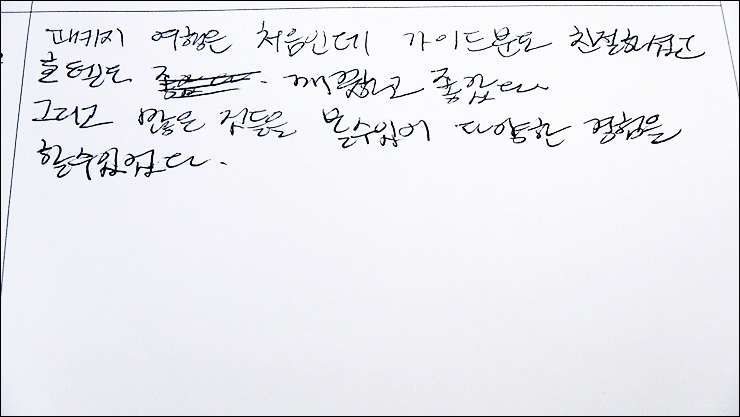 패키지 여행은 처음인데 가이드분도 친절하셨고
호텔도 깨끗하고 좋았다
그리고 많은 것들을 볼수있어 다양한 경험을
할수있었다.